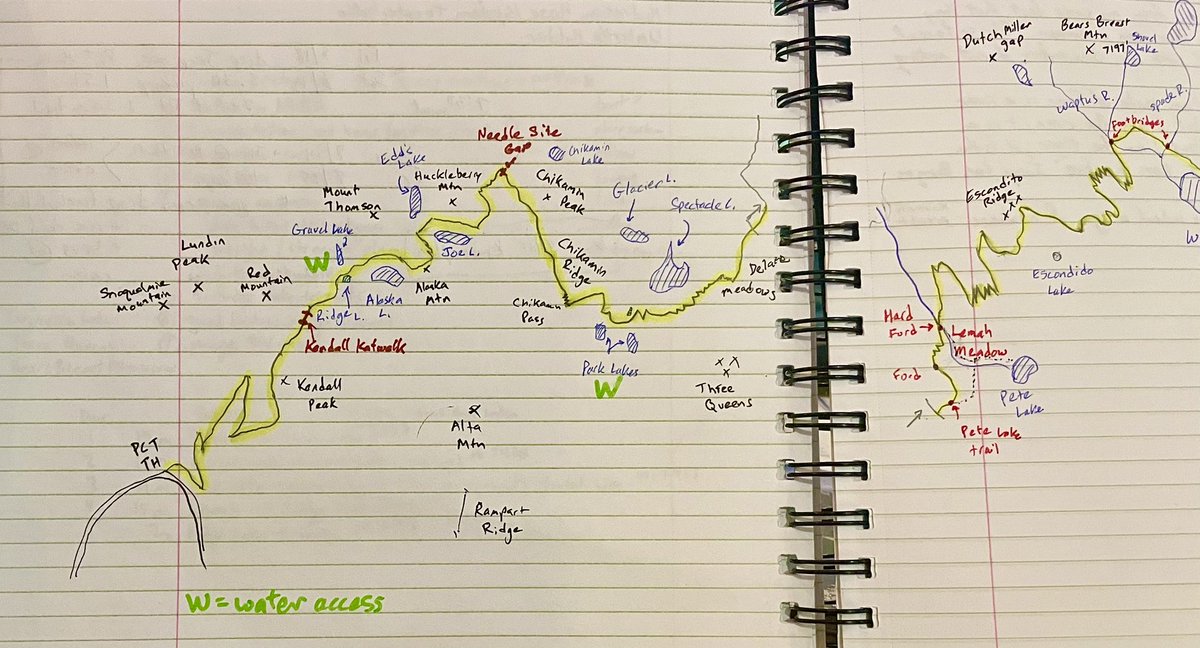 Needle Site
Gap
Chikamin
Lake
Edd's
Lake
Huckleberry
Mtn
Chikamin
Peak
Mount
Thomson
Glacier L.
Spectacle L.
Gravel Lake
?
Lundin
Peak
W
Joe L.
Chikamin
Ridge
Red
Mountain
Snoqualmie
Mountain
Alaska
Mtn
Delate
meadows
Ridge L.
Alaska
L.
Chikamin
Pass
Kendall Katwalk
Park Lakes
W
Three
Queens
Kendall
Peak
Alta
Mtn
PCT
TH
Rampart
Ridge
W = water access
Dutch Miller
gap
Bears Breast
Mtn
7197
Shovel
Lake
Waptus R.
Spade R.
Footbridges
Escondito
Ridge
W
Escondido
Lake
Hard
Ford
Lemah
Meadow
Ford
Pete
Lake
Pete Lake
trail